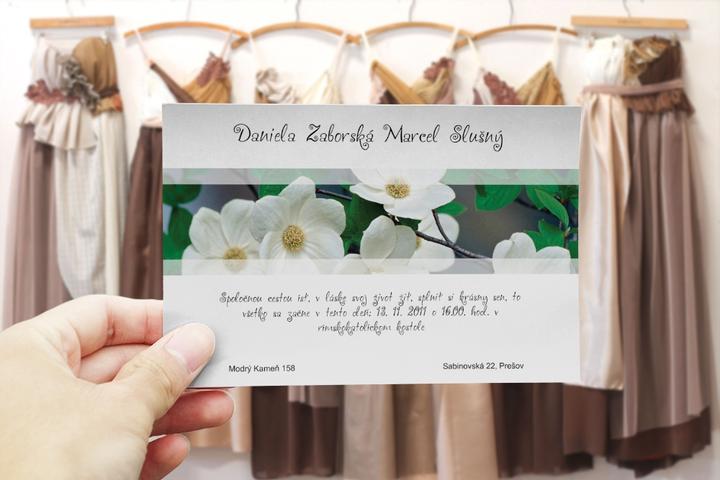 Daniela Zaborská Marcel Slušný
Spoločnou cestou ísť, v láske svoj život žiť, splniť si krásny sen, to
všetko sa začne v tento deň: 13. 11. 2011 o 16.00. hod. v
rímskokatolíckom kostole
Modrý Kameň 158
Sabinovská 22, Prešov